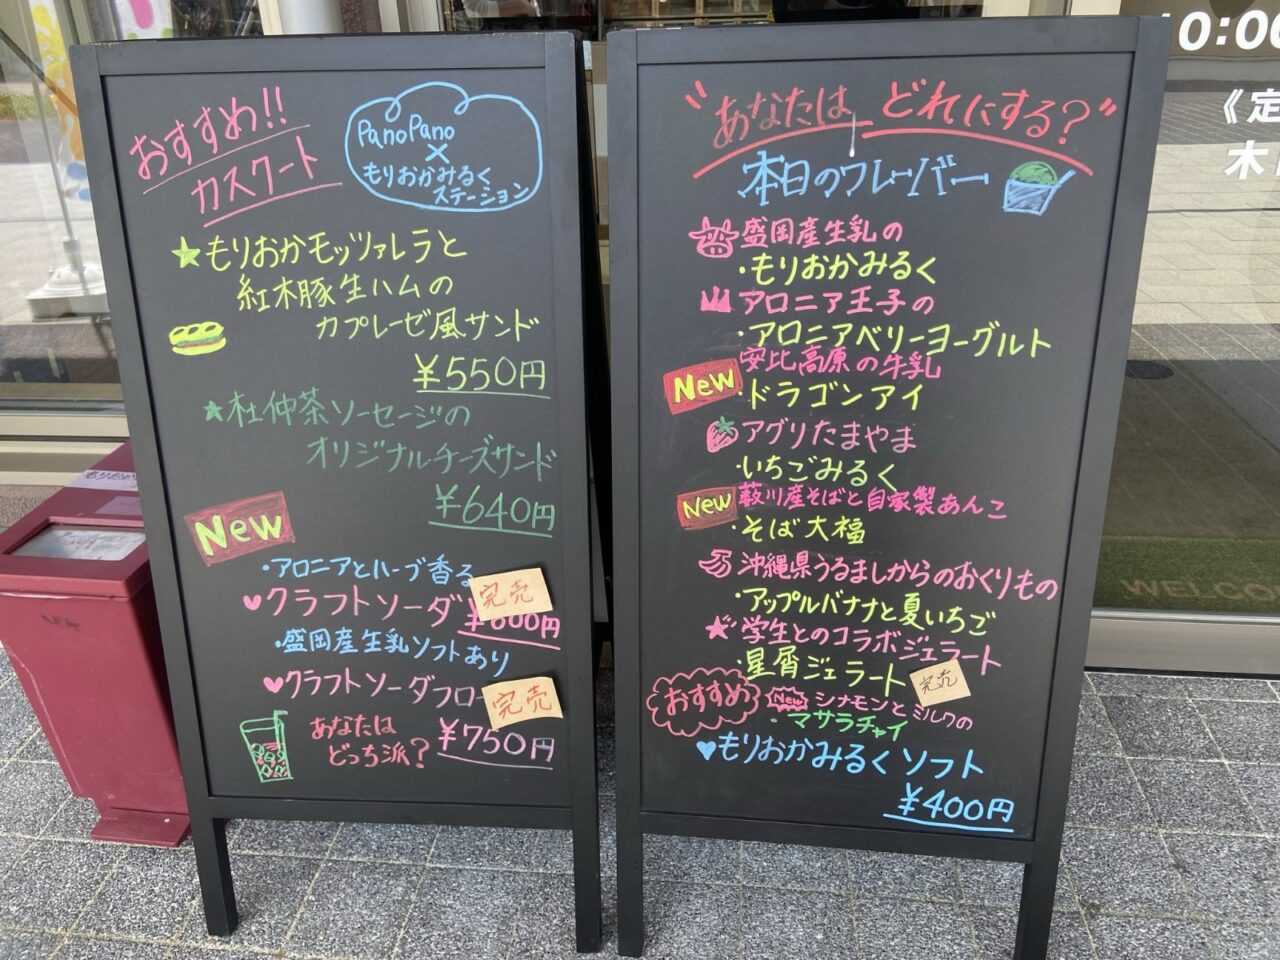 おすすめ!!
カスクート
PanoPano
×
もりおかみるく
ステーション
★もりおかモッツァレラと
紅木豚生ハムの
カプレーゼ風サンド
¥550円
★杜仲茶ソーセージの
オリジナルチーズサンド
¥640円
New
・アロニアとハーブ香る
♥クラフトソーダ
完売
・盛岡産生乳ソフトあり
♥クラフトソーダフロー
完売
あなたは
どっち派?
¥750円
"あなたは どれにする?"
本日のフレーバー
盛岡産生乳の
・もりおかみるく
アロニア王子の
・アロニアベリーヨーグルト
New
安比高原の牛乳
・ドラゴンアイ
アグリたまやま
・いちごみるく
New
薮川産そばと自家製あんこ
・そば大福
沖縄県うるましからのおくりもの
・アップルバナナと夏いちご
★学生とのコラボジェラート
・星屑ジェラート
完売
おすすめ
New シナモンとミルクの
・マサラチャイ
♥もりおかみるくソフト
¥400円
10:00
《定
木
WELCO